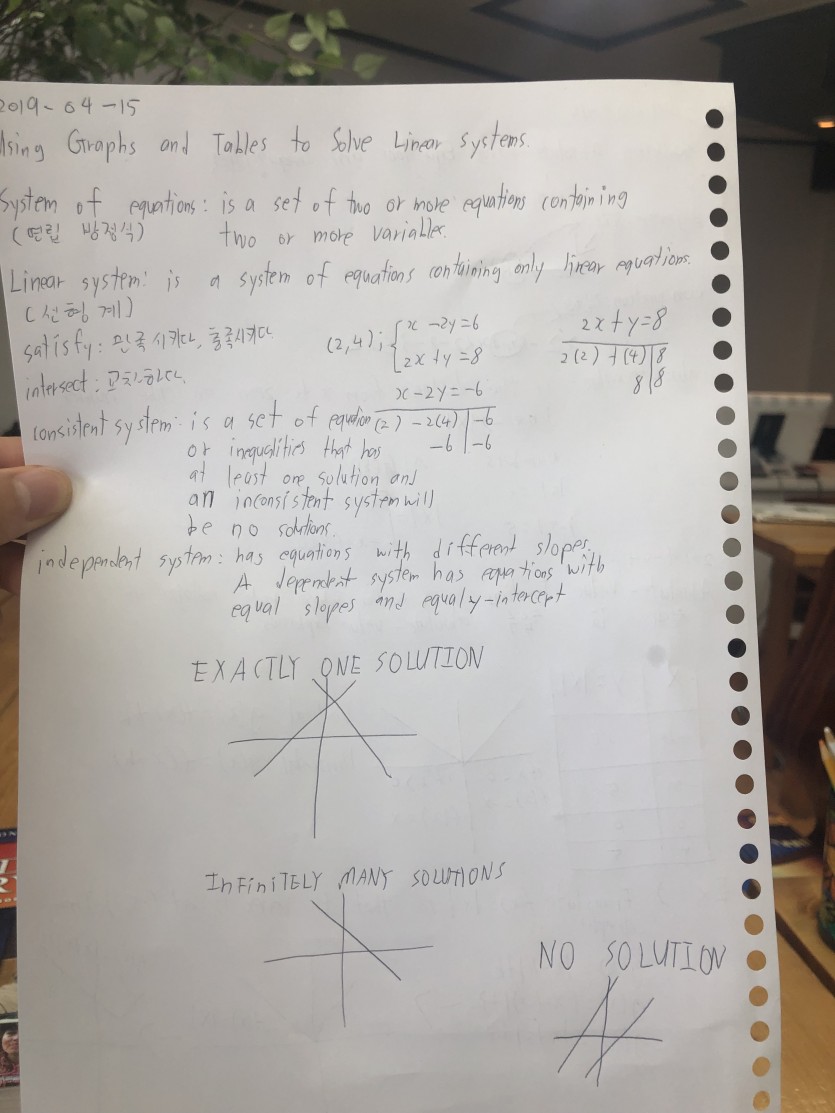 2019-04-15
Using Graphs and Tables to Solve Linear Systems.
System of equations: is a set of two or more equations containing
(연립 방정식) two or more variables.
Linear system: is a system of equations containing only linear equations.
(선형계)
satisfy: 만족시키다, 충족시키다.
(2,4); { x - 2y = 6
2x + y = 8
2x + y = 8
2(2) + (4) | 8
8 | 8
intersect: 교차하다.
x - 2y = -6
(2) - 2(4) | -6
-6 | -6
consistent system: is a set of equation
or inequalities that has
at least one solution and
an inconsistent system will
be no solutions.
independent system: has equations with different slopes.
A dependent system has equations with
equal slopes and equal y-intercept
EXACTLY ONE SOLUTION
InFiniTELY MANY SOLUTIONS
NO SOLUTION